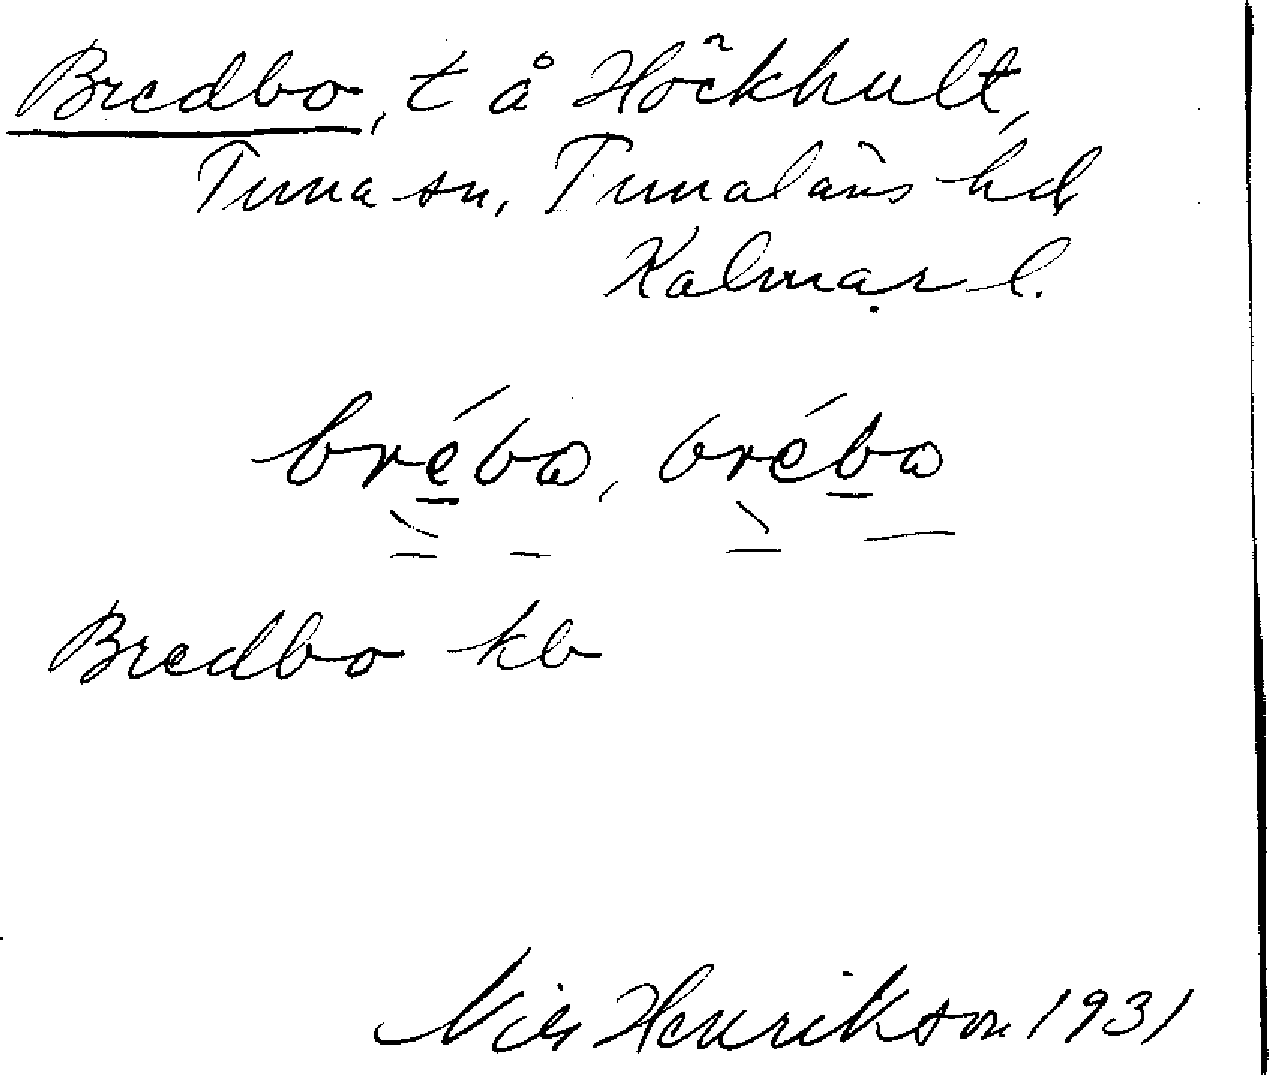 Bredbo, t å Hökhult,
Tuna sn, Tunaläns hd
Kalmar l.
brébo, brébo
Bredbo kb
Nils Henrikson 1931